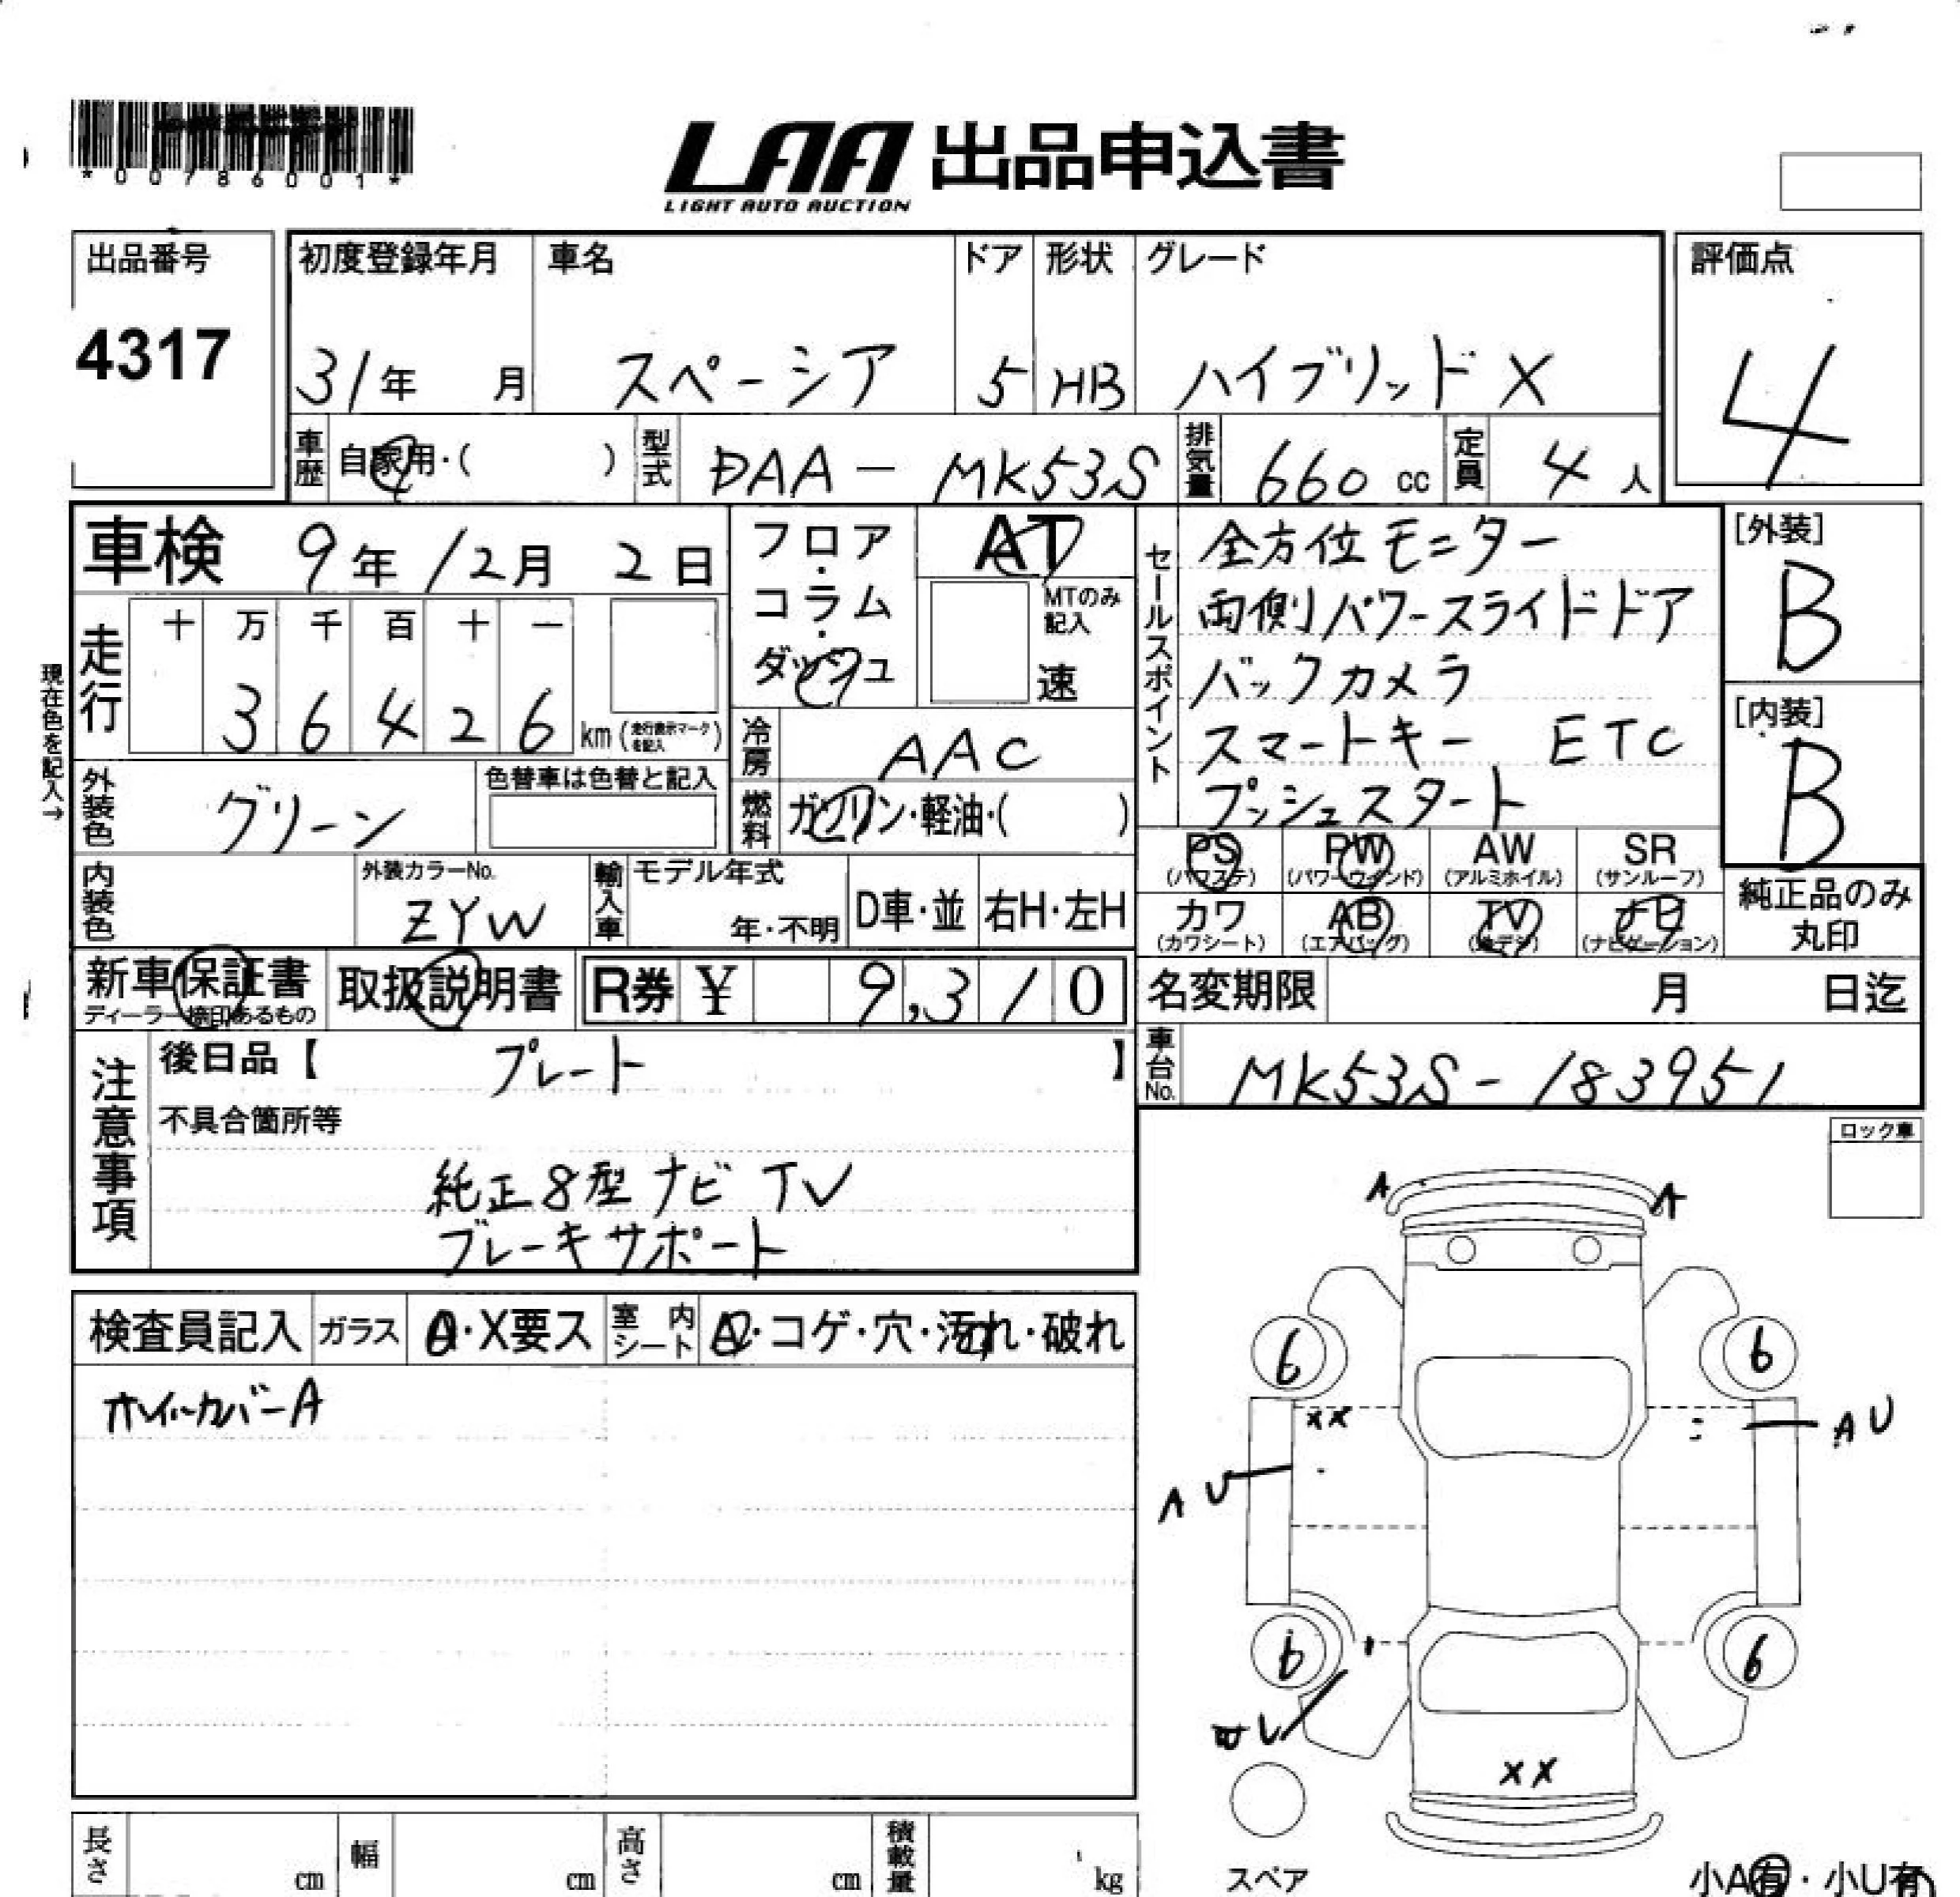 *00786001*
LAA 出品申込書
LIGHT AUTO AUCTION
出品番号 初度登録年月 車名 ドア 形状 グレード 評価点
4317 31年 月 スペーシア 5 HB ハイブリッド X 4
車歴 自家用・( ) 型式 DAA-MK53S 排気量 660 cc 定員 4 人
車検 9年 12月 2日
フロア・コラム・ダッシュ AT
MTのみ記入 速
セールスポイント
全方位モニター
両側パワースライドドア
バックカメラ
スマートキー ETC
プッシュスタート
[外装]
B
[内装]
B
現在色を記入→
走行 十 万 千 百 十 一
3 6 4 2 6 km (走行表示マークを記入)
冷房 AAC
外装色 グリーン 色替車は色替と記入
燃料 ガソリン・軽油・( )
PS (パワステ) PW (パワーウインド) AW (アルミホイル) SR (サンルーフ)
カワ (カワシート) AB (エアバッグ) TV (地デジ) ナビ (ナビゲーション)
純正品のみ丸印
内装色 外装カラーNo. ZYW 輸入車 モデル年式 年・不明 D車・並 右H・左H
新車保証書 ディーラー捺印あるもの 取扱説明書 R券 ¥ 9,310
名変期限 月 日迄
車台No. MK53S-183951
注意事項
後日品【 プレート 】
不具合箇所等
純正8型ナビTV
ブレーキサポート
ロック車
検査員記入 ガラス A・X要ス 室内シート A・コゲ・穴・汚れ・破れ
ホイールカバーA
A A
6 6
XX
A U
A U
6 6
U
XX
スペア
長さ cm 幅 cm 高さ cm 積載量 kg
小A有・小U有